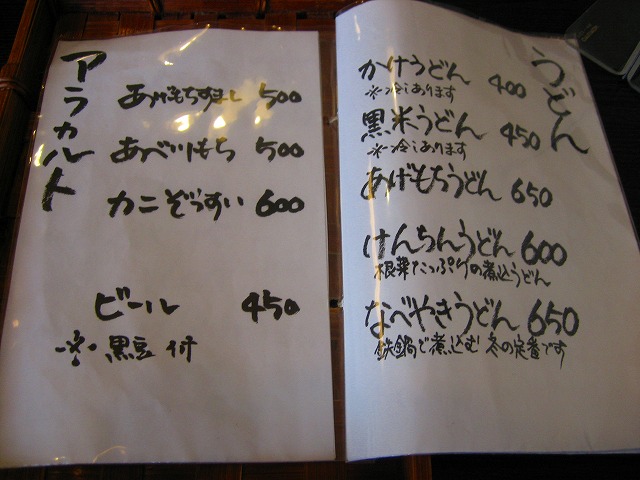 アラカルト
あげもちすまし 500
あべかわもち 500
カニぞうすい 600
ビール 450
※黒豆付
うどん
かけうどん 400
※冷しあります
黒米うどん 450
※冷しあります
あげもちうどん 650
けんちんうどん 600
根菜たっぷりの煮込うどん
なべやきうどん 650
鉄鍋で煮込む 冬の定番です